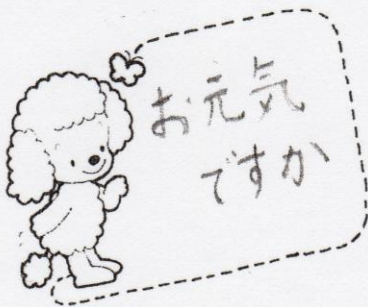 お元気
ですか